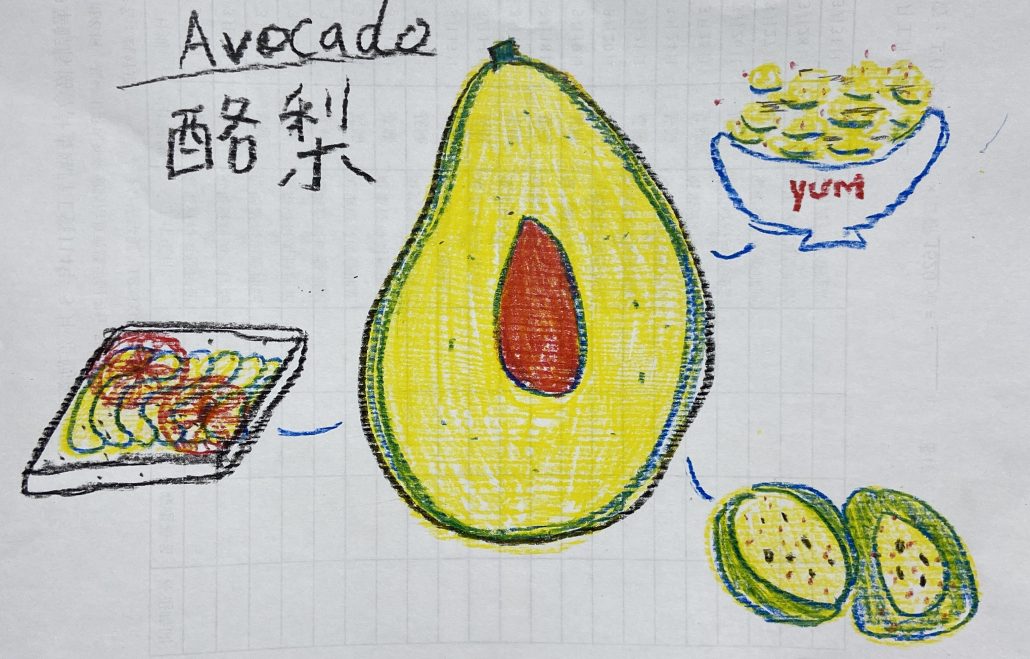 Avocado
酪梨
yum